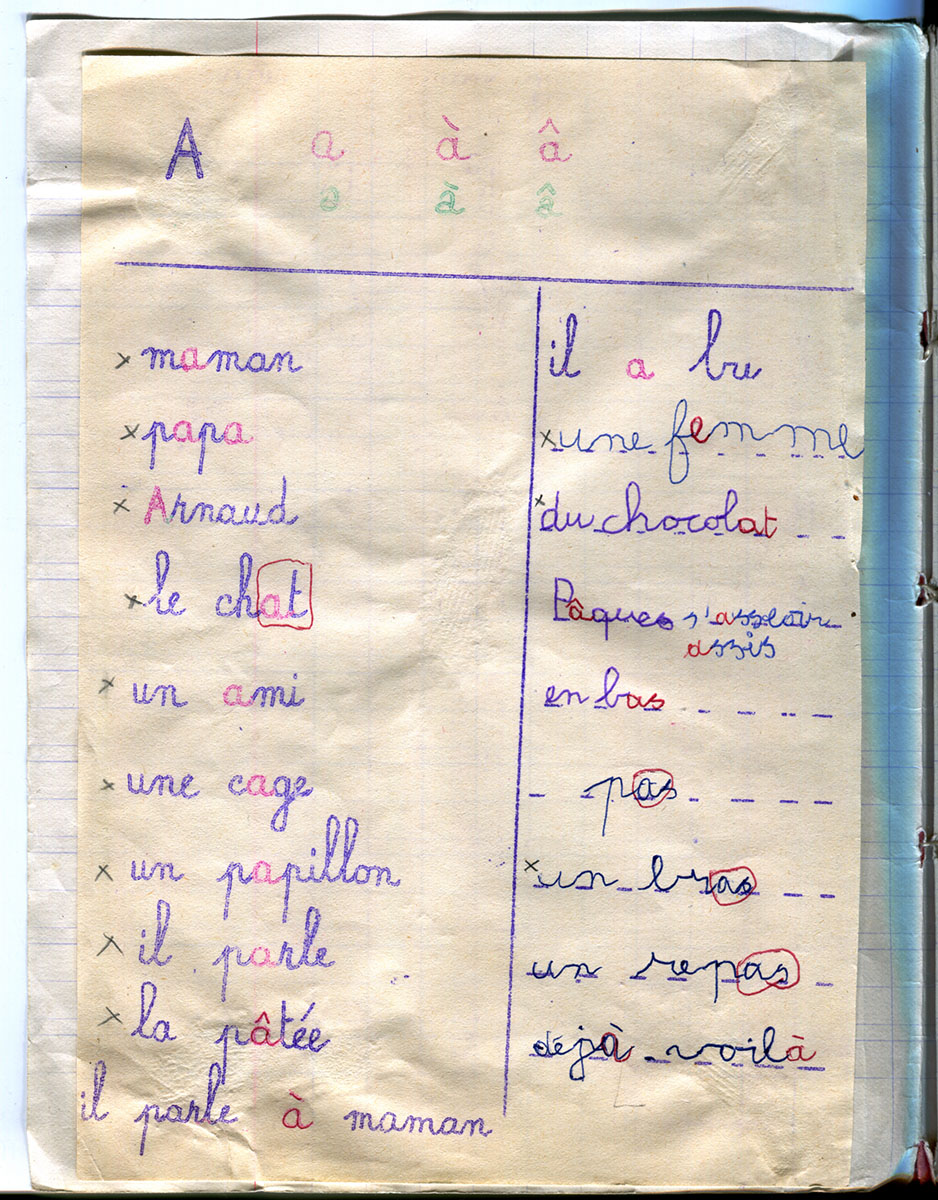 A a à â
a à â
maman
papa
Arnaud
le chat
un ami
une cage
un papillon
il parle
la pâtée
il parle à maman
il a bu
une femme
du chocolat
Pâques s'asseoir
assis
en bas
pas
un bras
un repas
déjà voilà